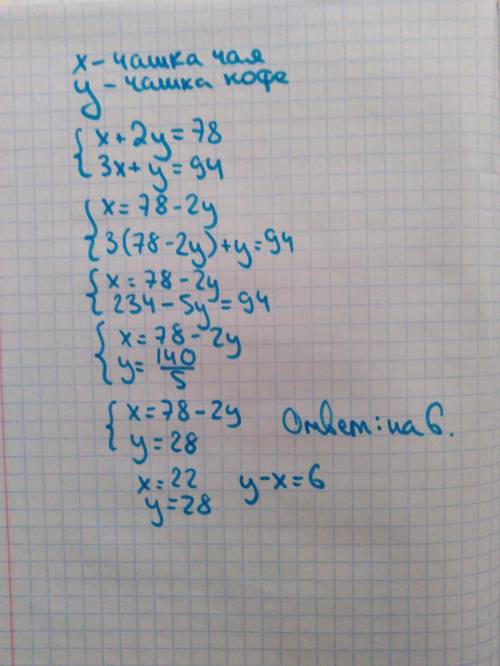 x - чашка чая
y - чашка кофе
{ x + 2y = 78
3x + y = 94
{ x = 78 - 2y
3(78 - 2y) + y = 94
{ x = 78 - 2y
234 - 5y = 94
{ x = 78 - 2y
y = 140/5
{ x = 78 - 2y
y = 28
Ответ: на 6.
x = 22 y - x = 6
y = 28